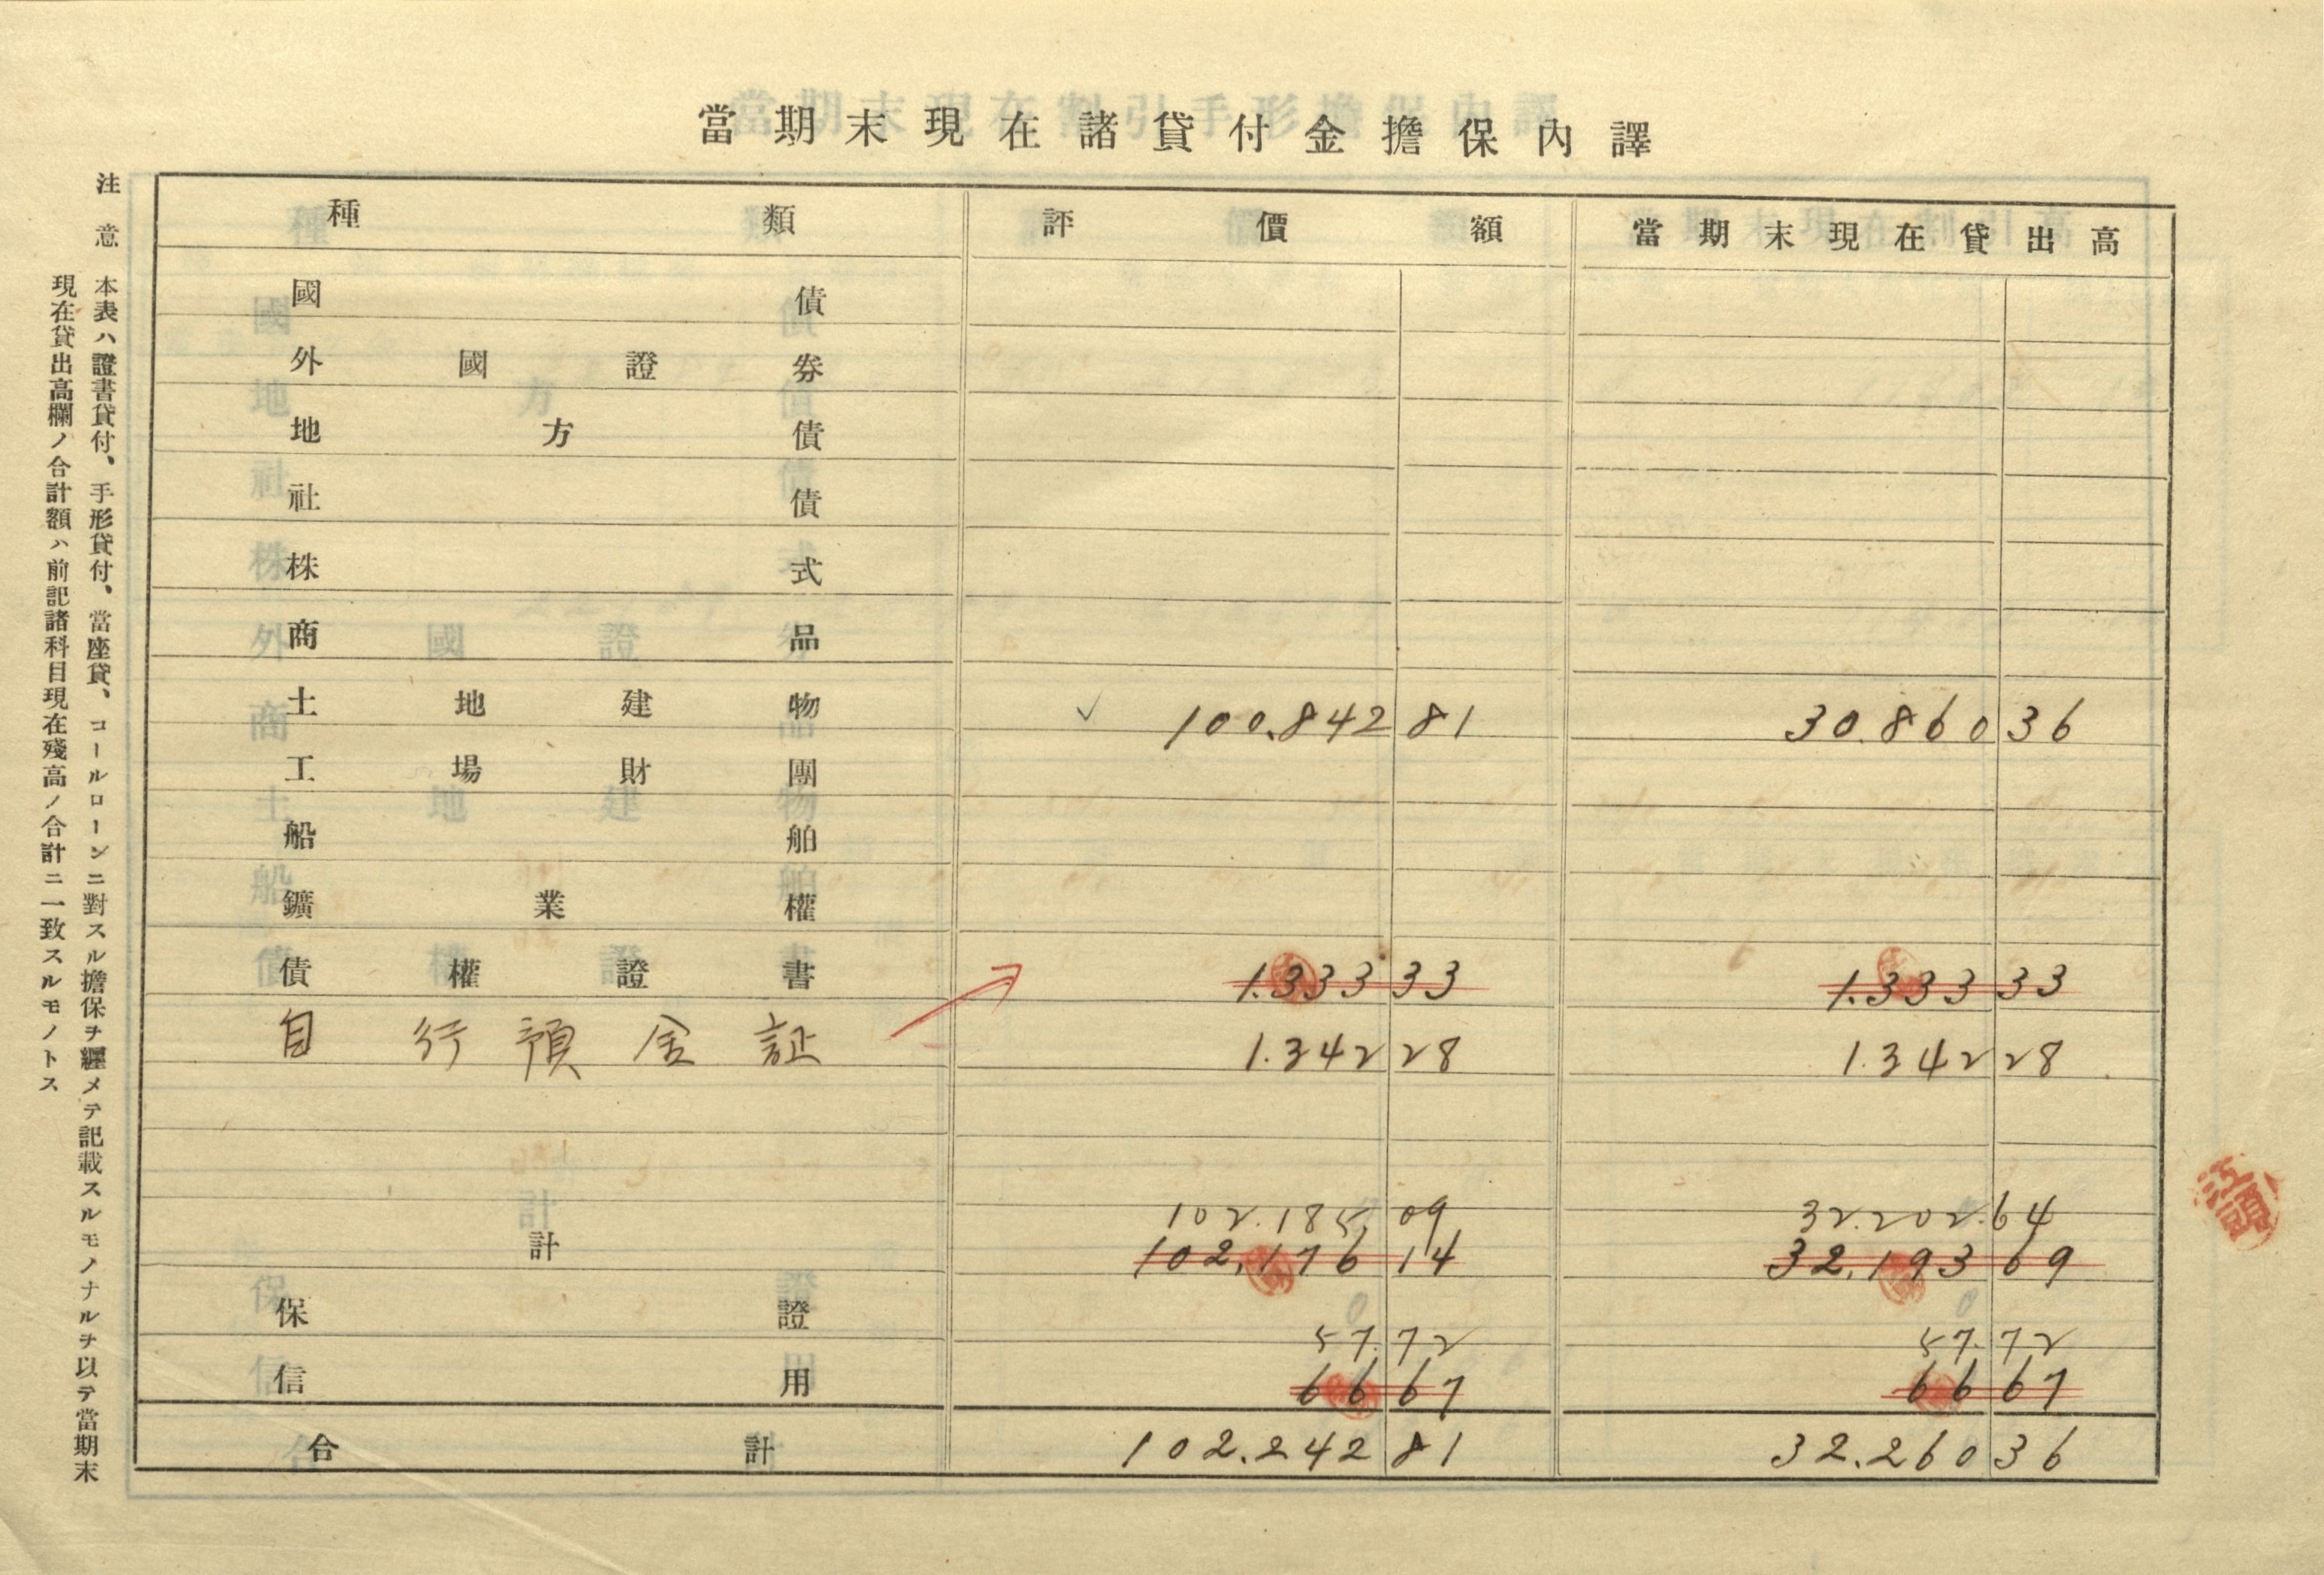 當期末現在諸貸付金擔保內譯
種類 評價額 當期末現在貸出高
國債
外國證券
地方債
社債
株式
商品
土地建物 ✓ 100.842 81 30.860 36
工場財團
船舶
鑛業權
債權證書 1.333 33 1.333 33
自行預金証 1.342 28 1.342 28
102.185 09 32.202.64
計 102.176 14 32.193 69
保證
57.72 57.72
信用 66 67 66 67
合計 102.242 81 32.260 36
注意 本表ハ證書貸付、手形貸付、當座貸、コールローンニ對スル擔保ヲ纒メテ記載スルモノナルヲ以テ當期末
現在貸出高欄ノ合計額ハ前記諸科目現在殘高ノ合計ニ一致スルモノトス